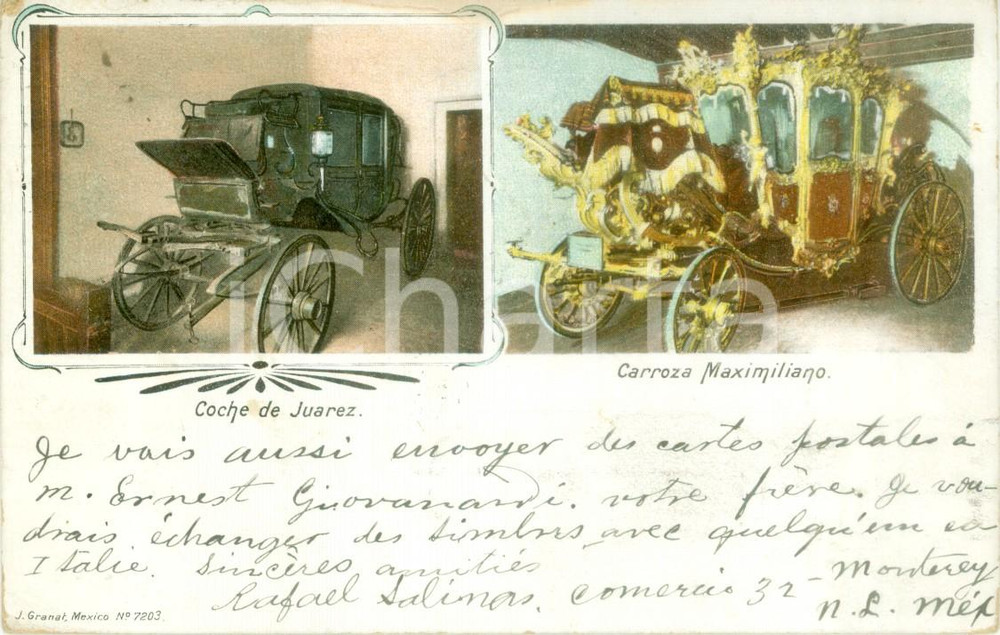 Coche de Juarez.
Carroza Maximiliano.
Je vais aussi envoyer des cartes postales à
m. Ernest Giovanardi, votre frère. Je vou-
drais échanger des timbres avec quelqu'un en
Italie. Sincères amitiés
Rafael Salinas, comercio 32 - Monterey
N. L. Méx
J. Granat, Mexico Nº 7203.
iCharta